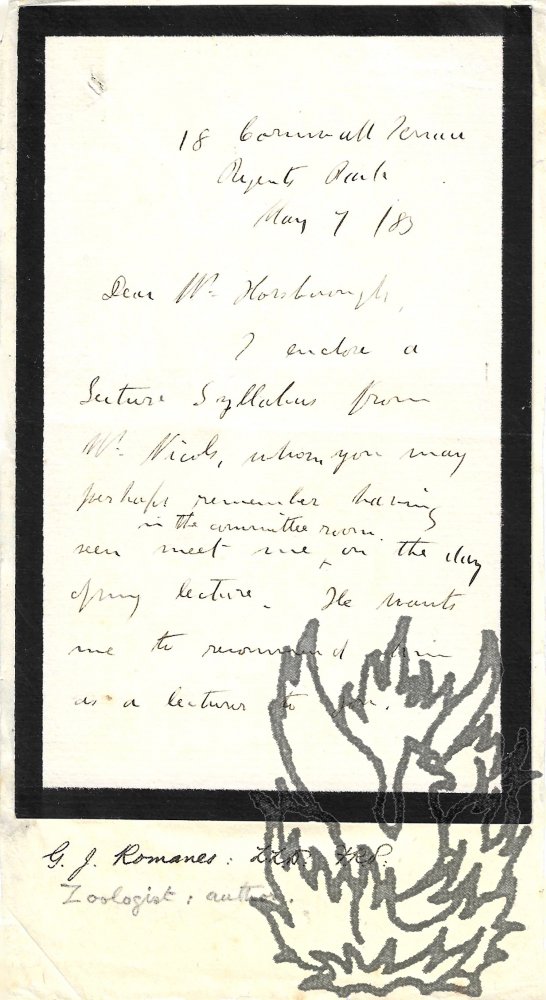 18 Cornwall Terrace
Regents Park
May 7 /83
Dear Mr. Horsborough,
I enclose a
Lecture Syllabus from
Mr. Nicols, whom you may
perhaps remember having
in the committee room.
seen meet me ‸ on the day
of my lecture. He wants
me to recommend him
as a lecturer to you.
G. J. Romanes: LLD: FRS:
Zoologist: author.